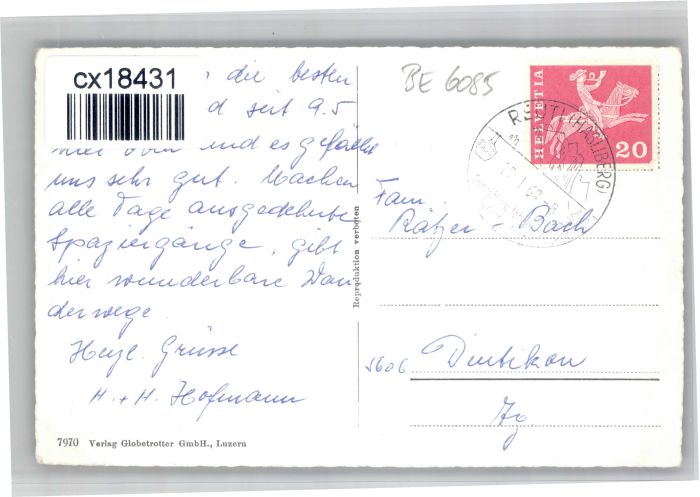 cx18431
die besten
d seit 9.5
hier oben und es gefällt
uns sehr gut. Machen
alle Tage ausgedehnte
Spaziergänge, gibt
hier wunderbare Wan
derwege.
Herzl. Grüsse
H. + H. Hofmann
7970 Verlag Globetrotter GmbH., Luzern
Reproduktion verboten
BE 6085
HELVETIA
20
REUTI (HASLIBERG)
Fam.
Rätzer - Bach
5606 Dintikon
Ag.